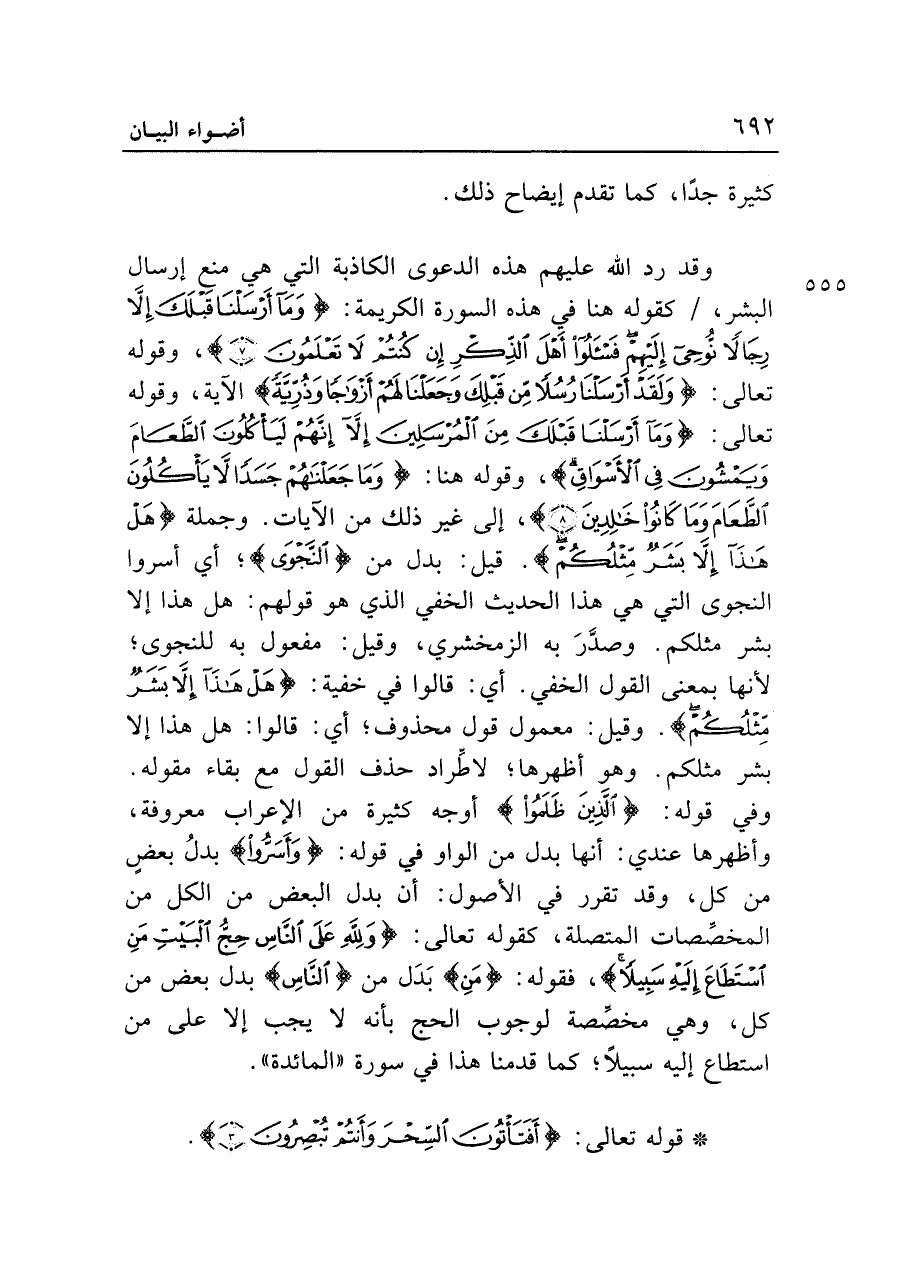 ٦٩٢ أضواء البيان
كثيرة جدًا، كما تقدم إيضاح ذلك.
وقد رد الله عليهم هذه الدعوى الكاذبة التي هي منع إرسال
٥٥٥
البشر، / كقوله هنا في هذه السورة الكريمة: ﴿وَمَآ أَرْسَلْنَا قَبْلَكَ إِلَّا
رِجَالًا نُّوحِىٓ إِلَيْهِمْ ۖ فَسْـَٔلُوٓا۟ أَهْلَ ٱلذِّكْرِ إِن كُنتُمْ لَا تَعْلَمُونَ ٧﴾، وقوله
تعالى: ﴿وَلَقَدْ أَرْسَلْنَا رُسُلًا مِّن قَبْلِكَ وَجَعَلْنَا لَهُمْ أَزْوَٰجًا وَذُرِّيَّةً﴾ الآية، وقوله
تعالى: ﴿وَمَآ أَرْسَلْنَا قَبْلَكَ مِنَ ٱلْمُرْسَلِينَ إِلَّآ إِنَّهُمْ لَيَأْكُلُونَ ٱلطَّعَامَ
وَيَمْشُونَ فِى ٱلْأَسْوَاقِ ۗ﴾، وقوله هنا: ﴿وَمَا جَعَلْنَٰهُمْ جَسَدًا لَّا يَأْكُلُونَ
ٱلطَّعَامَ وَمَا كَانُوا۟ خَٰلِدِينَ ٨﴾، إلى غير ذلك من الآيات. وجملة ﴿هَلْ
هَٰذَآ إِلَّا بَشَرٌ مِّثْلُكُمْ ۖ﴾. قيل: بدل من ﴿ٱلنَّجْوَى﴾؛ أي أسروا
النجوى التي هي هذا الحديث الخفي الذي هو قولهم: هل هذا إلا
بشر مثلكم. وصدَّرَ به الزمخشري، وقيل: مفعول به للنجوى؛
لأنها بمعنى القول الخفي. أي: قالوا في خفية: ﴿هَلْ هَٰذَآ إِلَّا بَشَرٌ
مِّثْلُكُمْ ۖ﴾. وقيل: معمول قول محذوف؛ أي: قالوا: هل هذا إلا
بشر مثلكم. وهو أظهرها؛ لاطِّراد حذف القول مع بقاء مقوله.
وفي قوله: ﴿ٱلَّذِينَ ظَلَمُوا۟﴾ أوجه كثيرة من الإعراب معروفة،
وأظهرها عندي: أنها بدل من الواو في قوله: ﴿وَأَسَرُّوا۟﴾ بدلُ بعضٍ
من كل، وقد تقرر في الأصول: أن بدل البعض من الكل من
المخصِّصات المتصلة، كقوله تعالى: ﴿وَلِلَّهِ عَلَى ٱلنَّاسِ حِجُّ ٱلْبَيْتِ مَنِ
ٱسْتَطَاعَ إِلَيْهِ سَبِيلًا ۚ﴾، فقوله: ﴿مَنِ﴾ بَدَل من ﴿ٱلنَّاسِ﴾ بدل بعض من
كل، وهي مخصِّصة لوجوب الحج بأنه لا يجب إلا على من
استطاع إليه سبيلاً؛ كما قدمنا هذا في سورة «المائدة».
* قوله تعالى: ﴿أَفَتَأْتُونَ ٱلسِّحْرَ وَأَنتُمْ تُبْصِرُونَ ٣﴾.